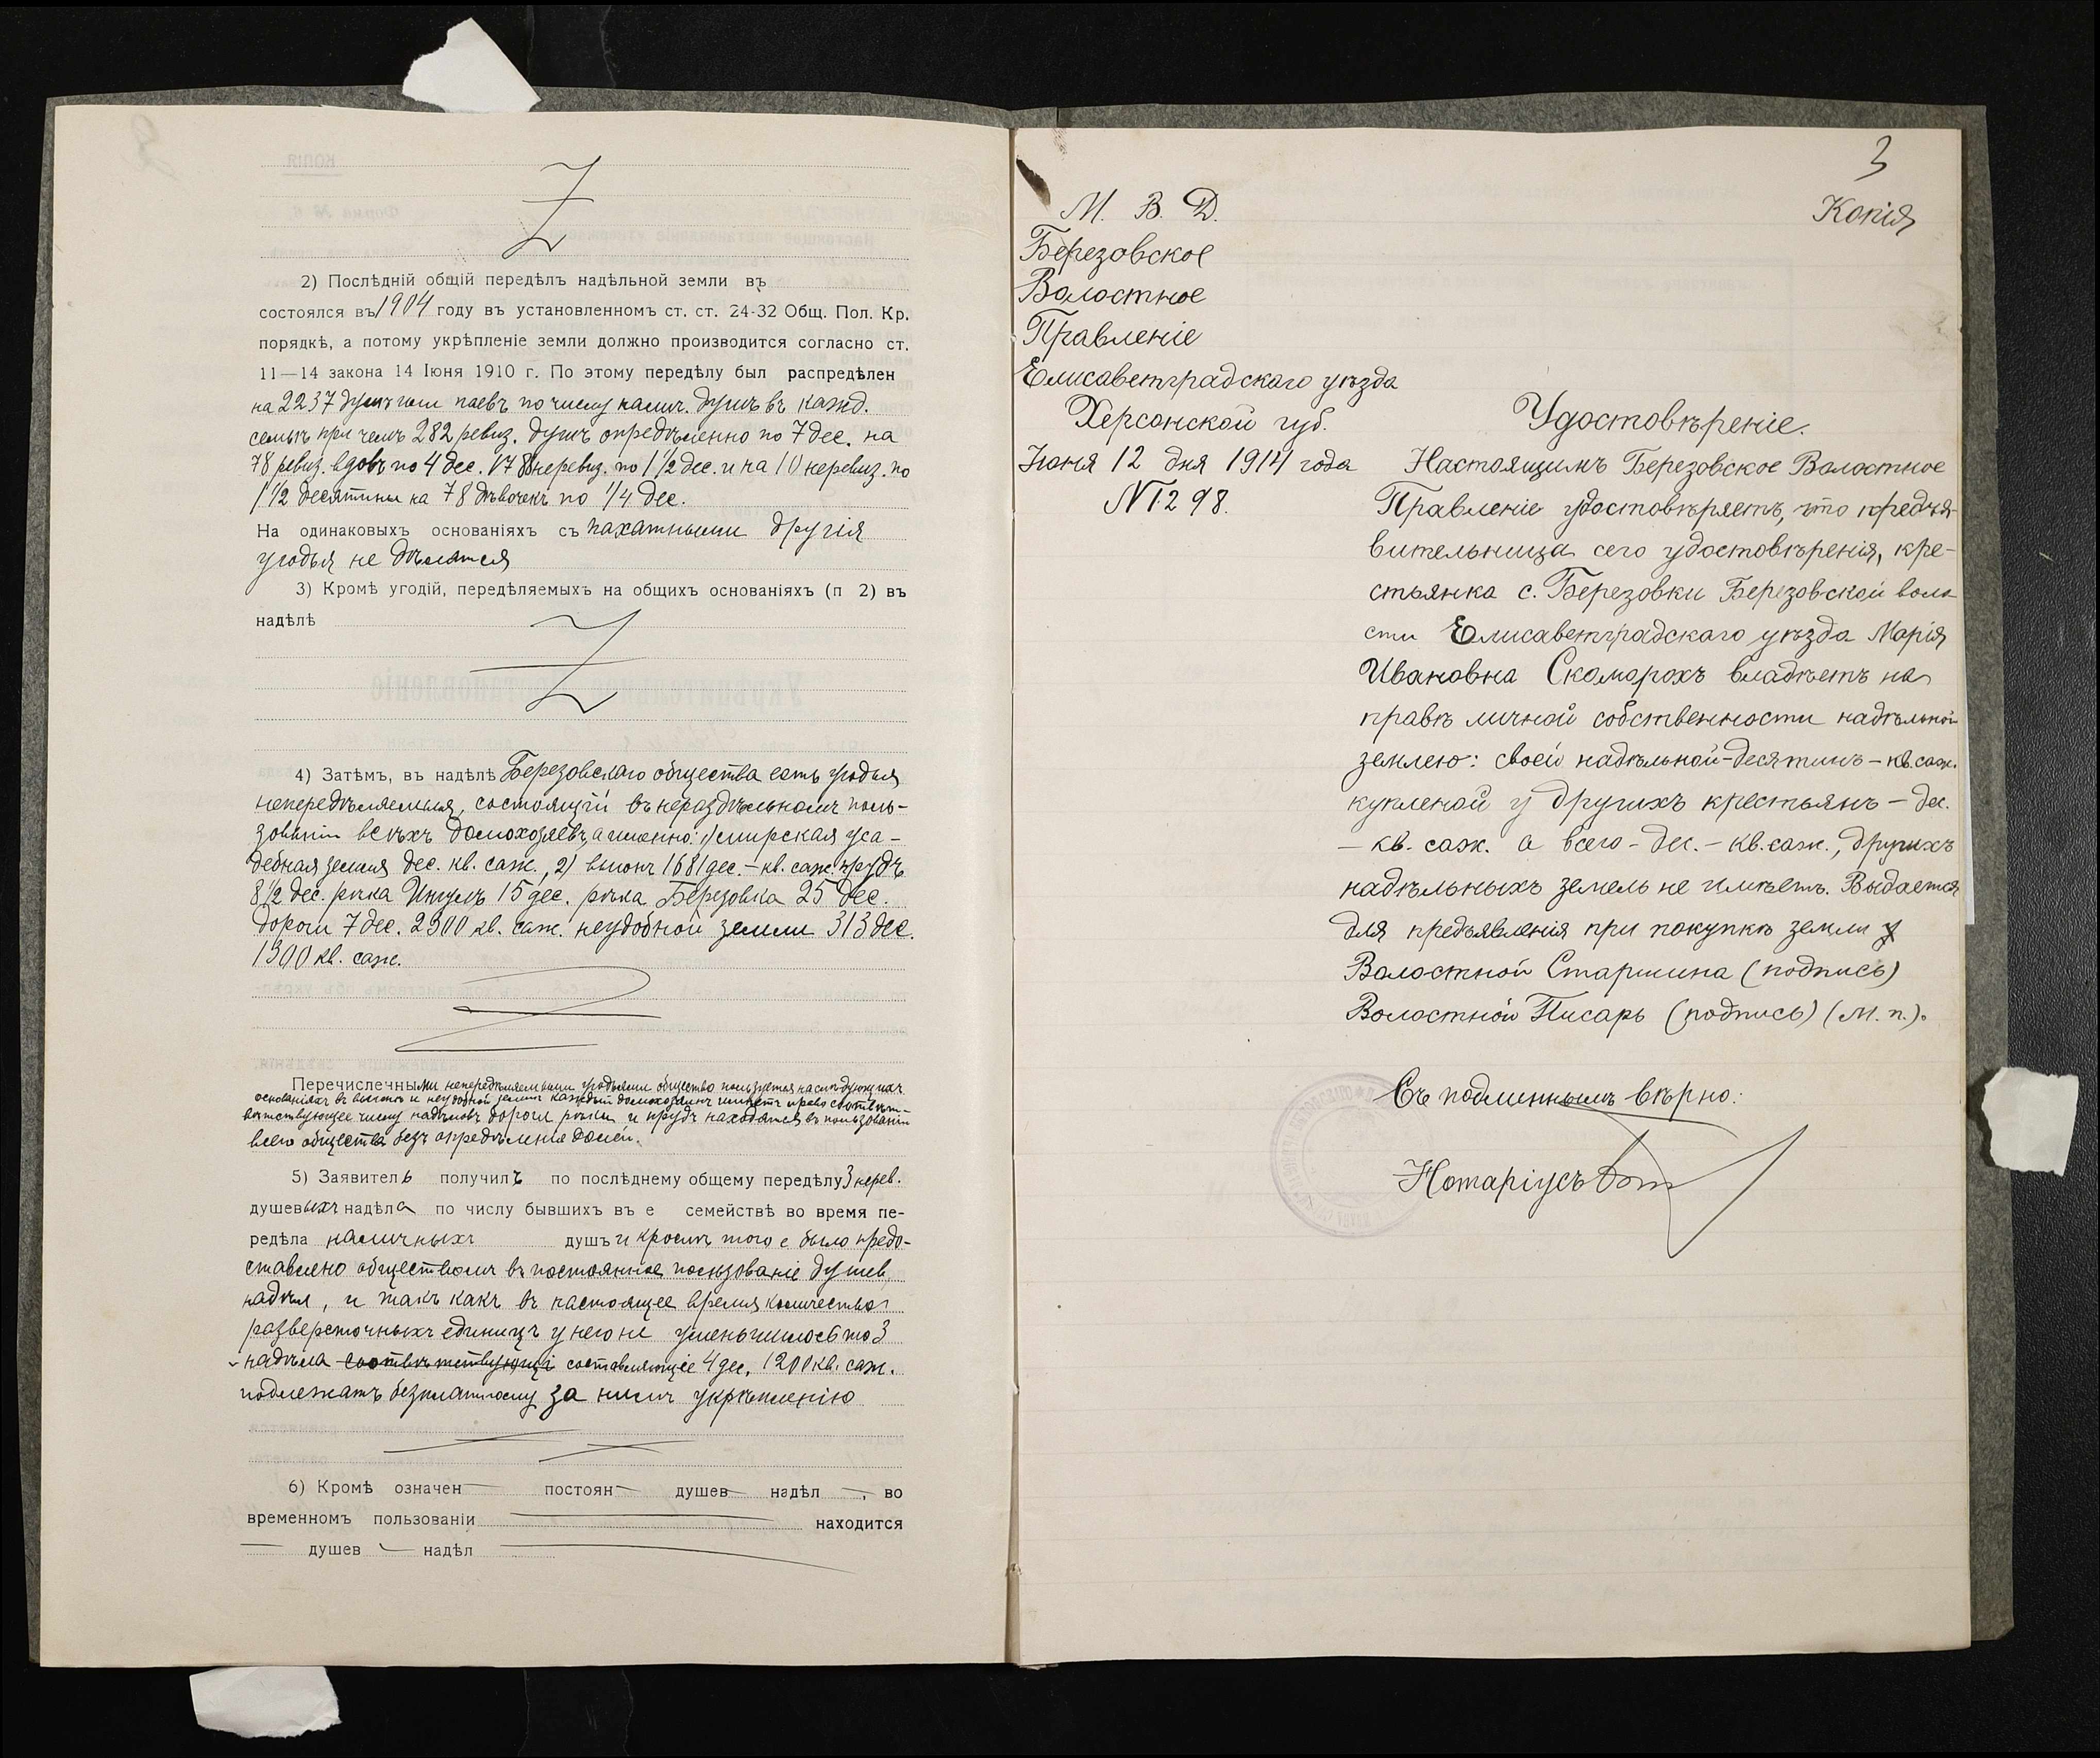 2) Послѣдній общій передѣлъ надѣльной земли въ
состоялся въ 1904 году въ установленномъ ст. ст. 24-32 Общ. Пол. Кр.
порядкѣ, а потому укрѣпленіе земли должно производится согласно ст.
11—14 закона 14 Іюня 1910 г. По этому передѣлу былъ распредѣлен
на 2237 паевъ по числу налич. душъ въ кажд.
семьѣ при чемъ 282 ревиз. душъ опредѣленно по 7 дес. на
78 ревиз. вдовъ по 4 дес. неревиз. по 1 1/2 дес. и на 10 неревиз. по
1 1/2 десятины на 78 дѣвочекъ по 1/4 дес.
На одинаковыхъ основаніяхъ съ пахатными другія
угодья не дѣлятся
3) Кромѣ угодій, передѣляемыхъ на общихъ основаніяхъ (п 2) въ
надѣлѣ
4) Затѣмъ, въ надѣлѣ Березовскаго общества есть угодья
непередѣляемыя, состоящій въ нераздѣльномъ поль-
зованіи всѣхъ домохозяевъ, а именно: 1) мирская уса-
дебная земля дес. кв. саж., 2) выгонъ 1681 дес. — кв. саж. прудъ
8 1/2 дес. рѣка Ингулъ 15 дес. рѣка Березовка 25 дес.
дороги 7 дес. 2300 кв. саж. неудобной земли 313 дес.
1300 кв. саж.
Перечисленными непередѣляемыми угодьями общество пользуется на слѣдующихъ
основаніяхъ въ выгонѣ и неудобной землѣ каждый домохозяинъ имѣетъ право соотвѣт-
вѣтствующее числу надѣловъ дороги рѣки и прудъ находятся въ пользованіи
всего общества безъ опредѣленія долей.
5) Заявитель получилъ по послѣднему общему передѣлу 3 нерев.
душевыхъ надѣла по числу бывшихъ въ е семействѣ во время пе-
редѣла наличныхъ душъ и кромѣ того е было предо-
ставлено обществомъ въ постоянное пользованіе душев.
надѣл, и такъ какъ въ настоящее время количество
разверсточныхъ единицъ у него не уменьшилось то 3
надѣла соотвѣтствующі составляющіе 4 дес. 1200 кв. саж.
подлежатъ безплатному за нимъ укрѣпленію
6) Кромѣ означен — постоян — душев — надѣл —, во
временномъ пользованіи — находится
— душев — надѣл —
3
Копія
М. В. Д.
Березовское
Волостное
Правленіе
Елисаветградскаго уѣзда
Херсонской губ.
Іюня 12 дня 1914 года
№ 1298.
Удостовѣреніе.
Настоящимъ Березовское Волостное
Правленіе удостовѣряетъ, что предъя-
вительница сего удостовѣренія, кре-
стьянка с. Березовки Березовской воло-
сти Елисаветградскаго уѣзда Марія
Ивановна Скоморохъ владѣетъ на
правѣ личной собственности надѣльной
землею: своей надѣльной — десятинъ — кв. саж.
купленой у другихъ крестьянъ — дес.
— кв. саж. а всего — дес. — кв. саж., другихъ
надѣльныхъ земель не имѣетъ. Выдается
для предъявленія при покупкѣ земли
Волостной Старшина (подпись)
Волостной Писарь (подпись) (М. п.).
Съ подлиннымъ вѣрно:
Нотаріусъ